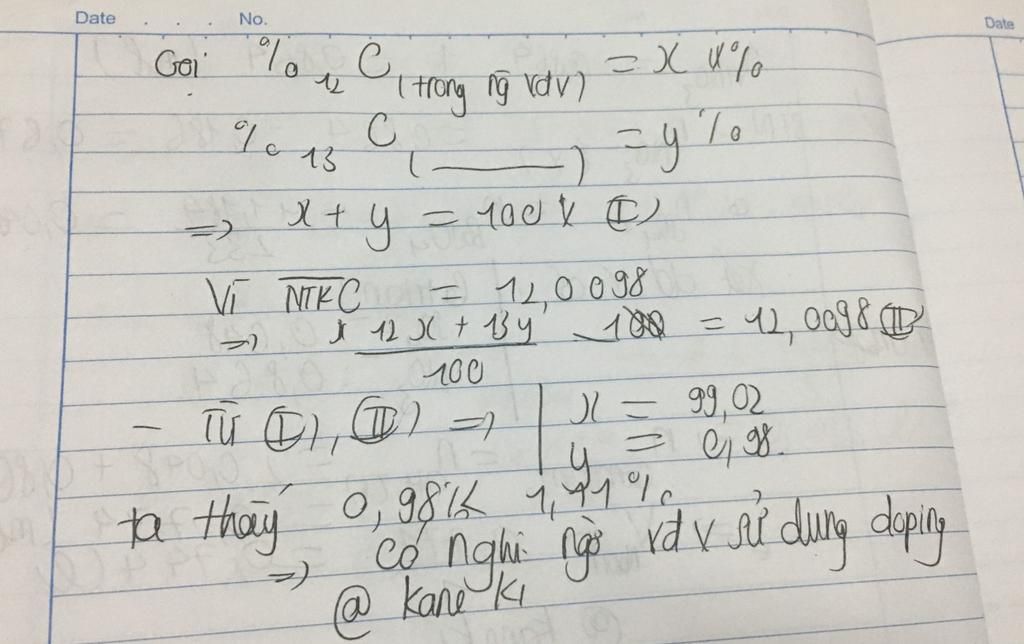 Date . . . No.
Date
Gọi % 12 C (trong ng vđv) = x %
% 13 C ( ——— ) = y %
=> x + y = 100 (I)
Vì NTKC = 12,0098
=> 12x + 13y / 100 = 12,0098 (II)
- Từ (I), (II) => | x = 99,02
y = 0,98.
ta thấy 0,98% < 1,11%
=> có nghi ngờ vđv sử dung doping
@ kane ki